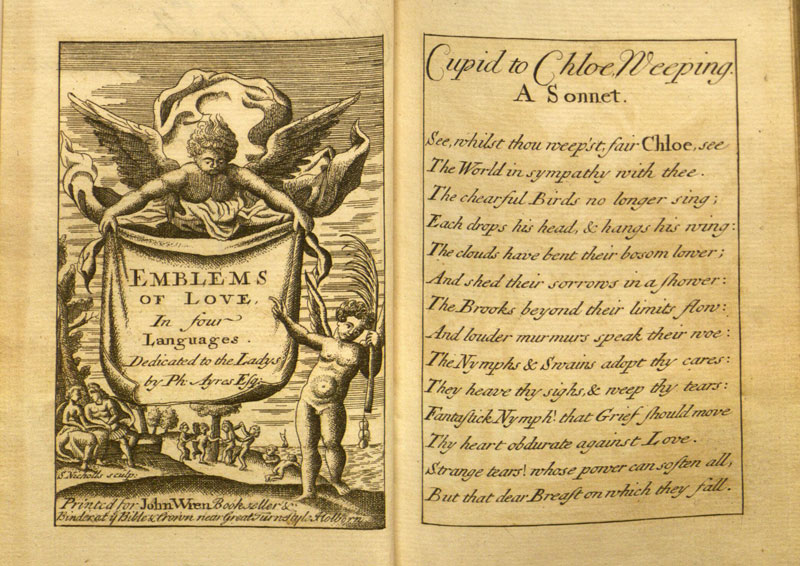 EMBLEMS
OF LOVE,
In four
Languages.
Dedicated to the Ladys
by Ph: Ayres Esq;
S. Nicholls sculp:
Printed for John Wren Bookseller &
Binder, at ye Bible & Crown near Great Turnestyle Holborn
Cupid to Chloe, Weeping.
A Sonnet.
See, whilst thou weep'st, fair Chloe, see
The World in sympathy with thee.
The chearful Birds no longer sing;
Each drops his head, & hangs his wing:
The clouds have bent their bosom lower;
And shed their sorrows in a ſhower:
The Brooks beyond their limits flow:
And louder murmurs speak their woe:
The Nymphs & Swains adopt thy cares:
They heave thy sighs, & weep thy tears:
Fantaſtick Nymph! that Grief ſhould move
Thy heart obdurate against Love.
Strange tears! whose power can soften all,
But that dear Breaſt on which they fall.